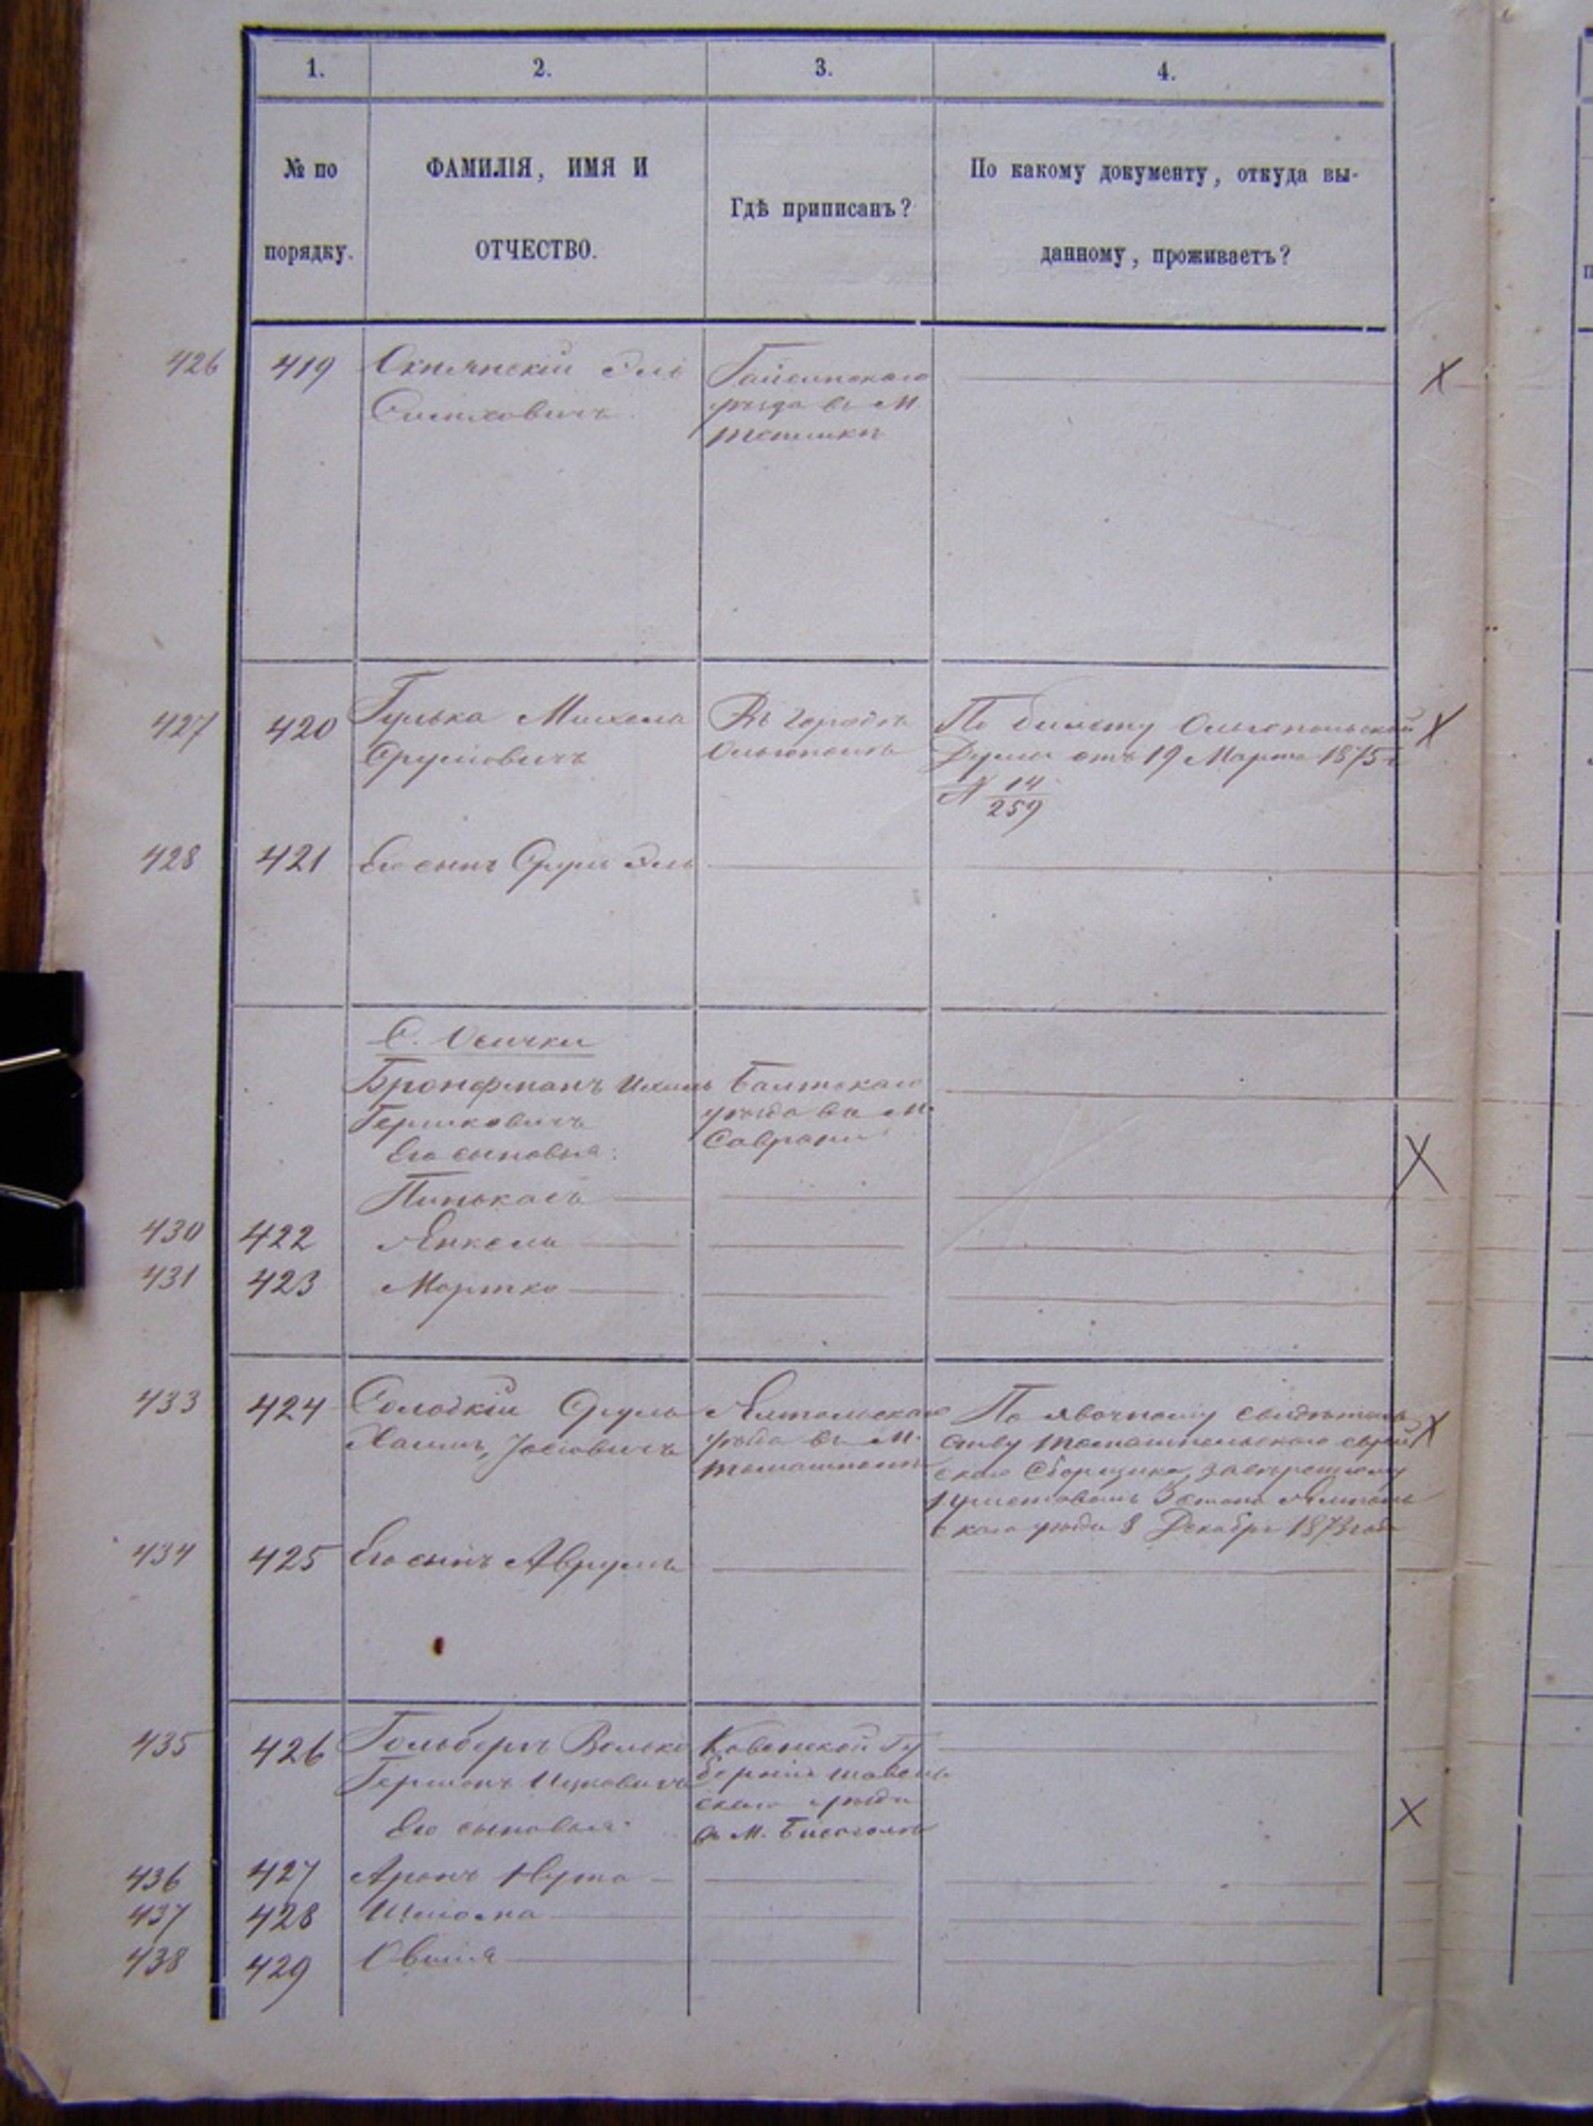 1.
2.
3.
4.
№ по
порядку.
ФАМИЛІЯ, ИМЯ И
ОТЧЕСТВО.
Гдѣ приписанъ?
По какому документу, откуда вы-
данному, проживаетъ?
426
419
Эль
Гайсинскаго
уѣзда въ М.
427
420
Гулька Михель
Сруліовичъ
Въ городѣ
Ольгополѣ
По билету Ольгопольской
Думы отъ 19 Марта 1875 г.
N 14/259
428
421
Его сынъ Сруль Эль
С. Осички
Бронфманъ Ихиль
Гершковичъ
Балтскаго
уѣзда въ М.
Саврани
Его сыновья:
Пинькасъ
430
422
Янкель
431
423
Мортко
433
424
Солодкій Сруль
Хаимъ Іосіовичъ
Ямпольскаго
уѣзда въ М.
Томашполѣ
По явочному свидѣтель
ству Томашпольскаго еврей
скаго сборщика,
Приставомъ 3 стана Ямполь
скаго уѣзда 8 Декабря 1873 года
434
425
Его сынъ Аврумъ
435
426
Гольберъ Волько
Гершонъ Ицковичъ
Ковенской Гу
берніи Шавель
скаго уѣзда
въ М.
Его сыновья:
436
427
Аронъ Нута
437
428
Шліома
438
429
Овшія